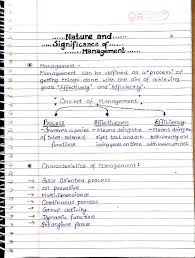 Nature and
Significance of
Management
Management -
Management can be defined as a 'process' of
getting things done with the aim of achieving
goals "Effectively" and "Efficiently".
Concept of Management
Process Effectiveness Efficiency
- Involves a series - Means doing the - Means doing
of inter-related right task and ach- the task correctly
functions ieving goals on time. with minimum cost.
Characteristics of Management:
→ Goal Oriented process
→ All pervasive
→ Multidimensional
→ Continuous process
→ Group activity
→ Dynamic function
→ Intangible force